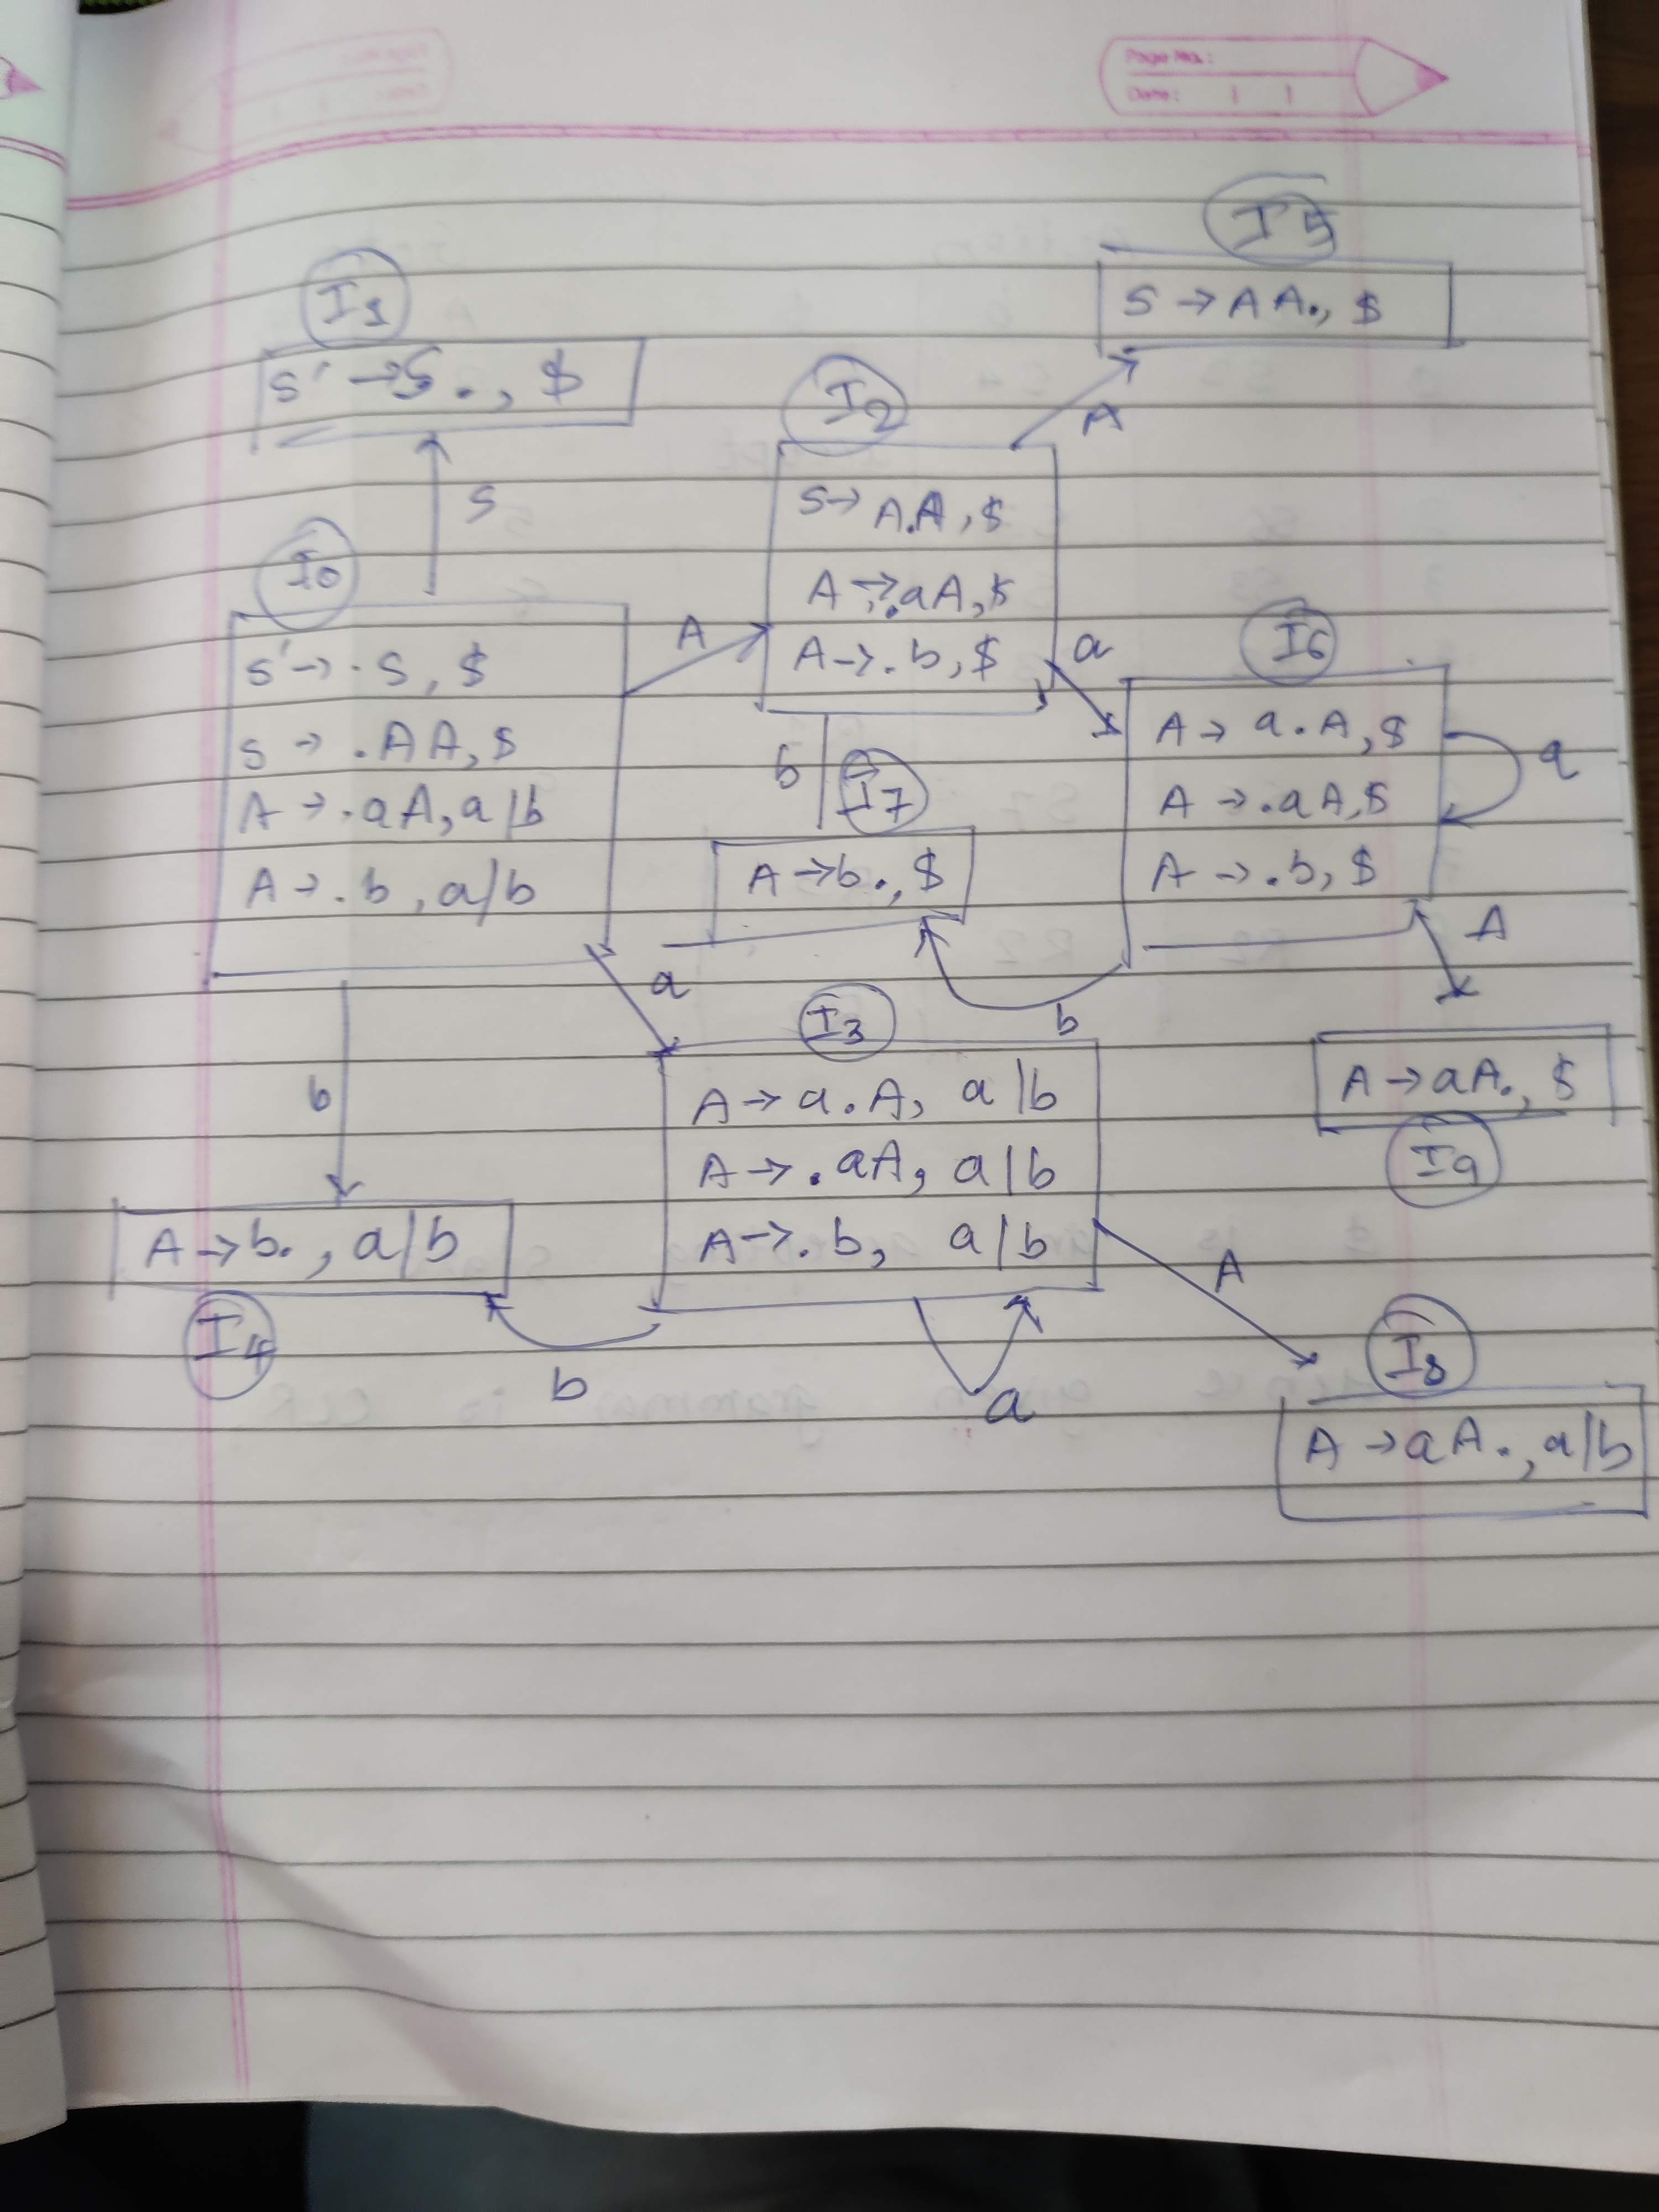 Page No.:
Date:
I5
S → AA., $
I1
S' → S., $
I2
A
S → A.A, $
A → .aA, $
A → .b, $
S
I0
S' → .S, $
S → .AA, $
A → .aA, a|b
A → .b, a/b
A
a
I6
A → a.A, $
A → .aA, $
A → .b, $
a
b
I7
A → b., $
A
b
a
I3
A → a.A, a|b
A → .aA, a|b
A → .b, a|b
A → aA., $
I9
b
A → b., a|b
I4
b
a
A
I8
A → aA., a|b